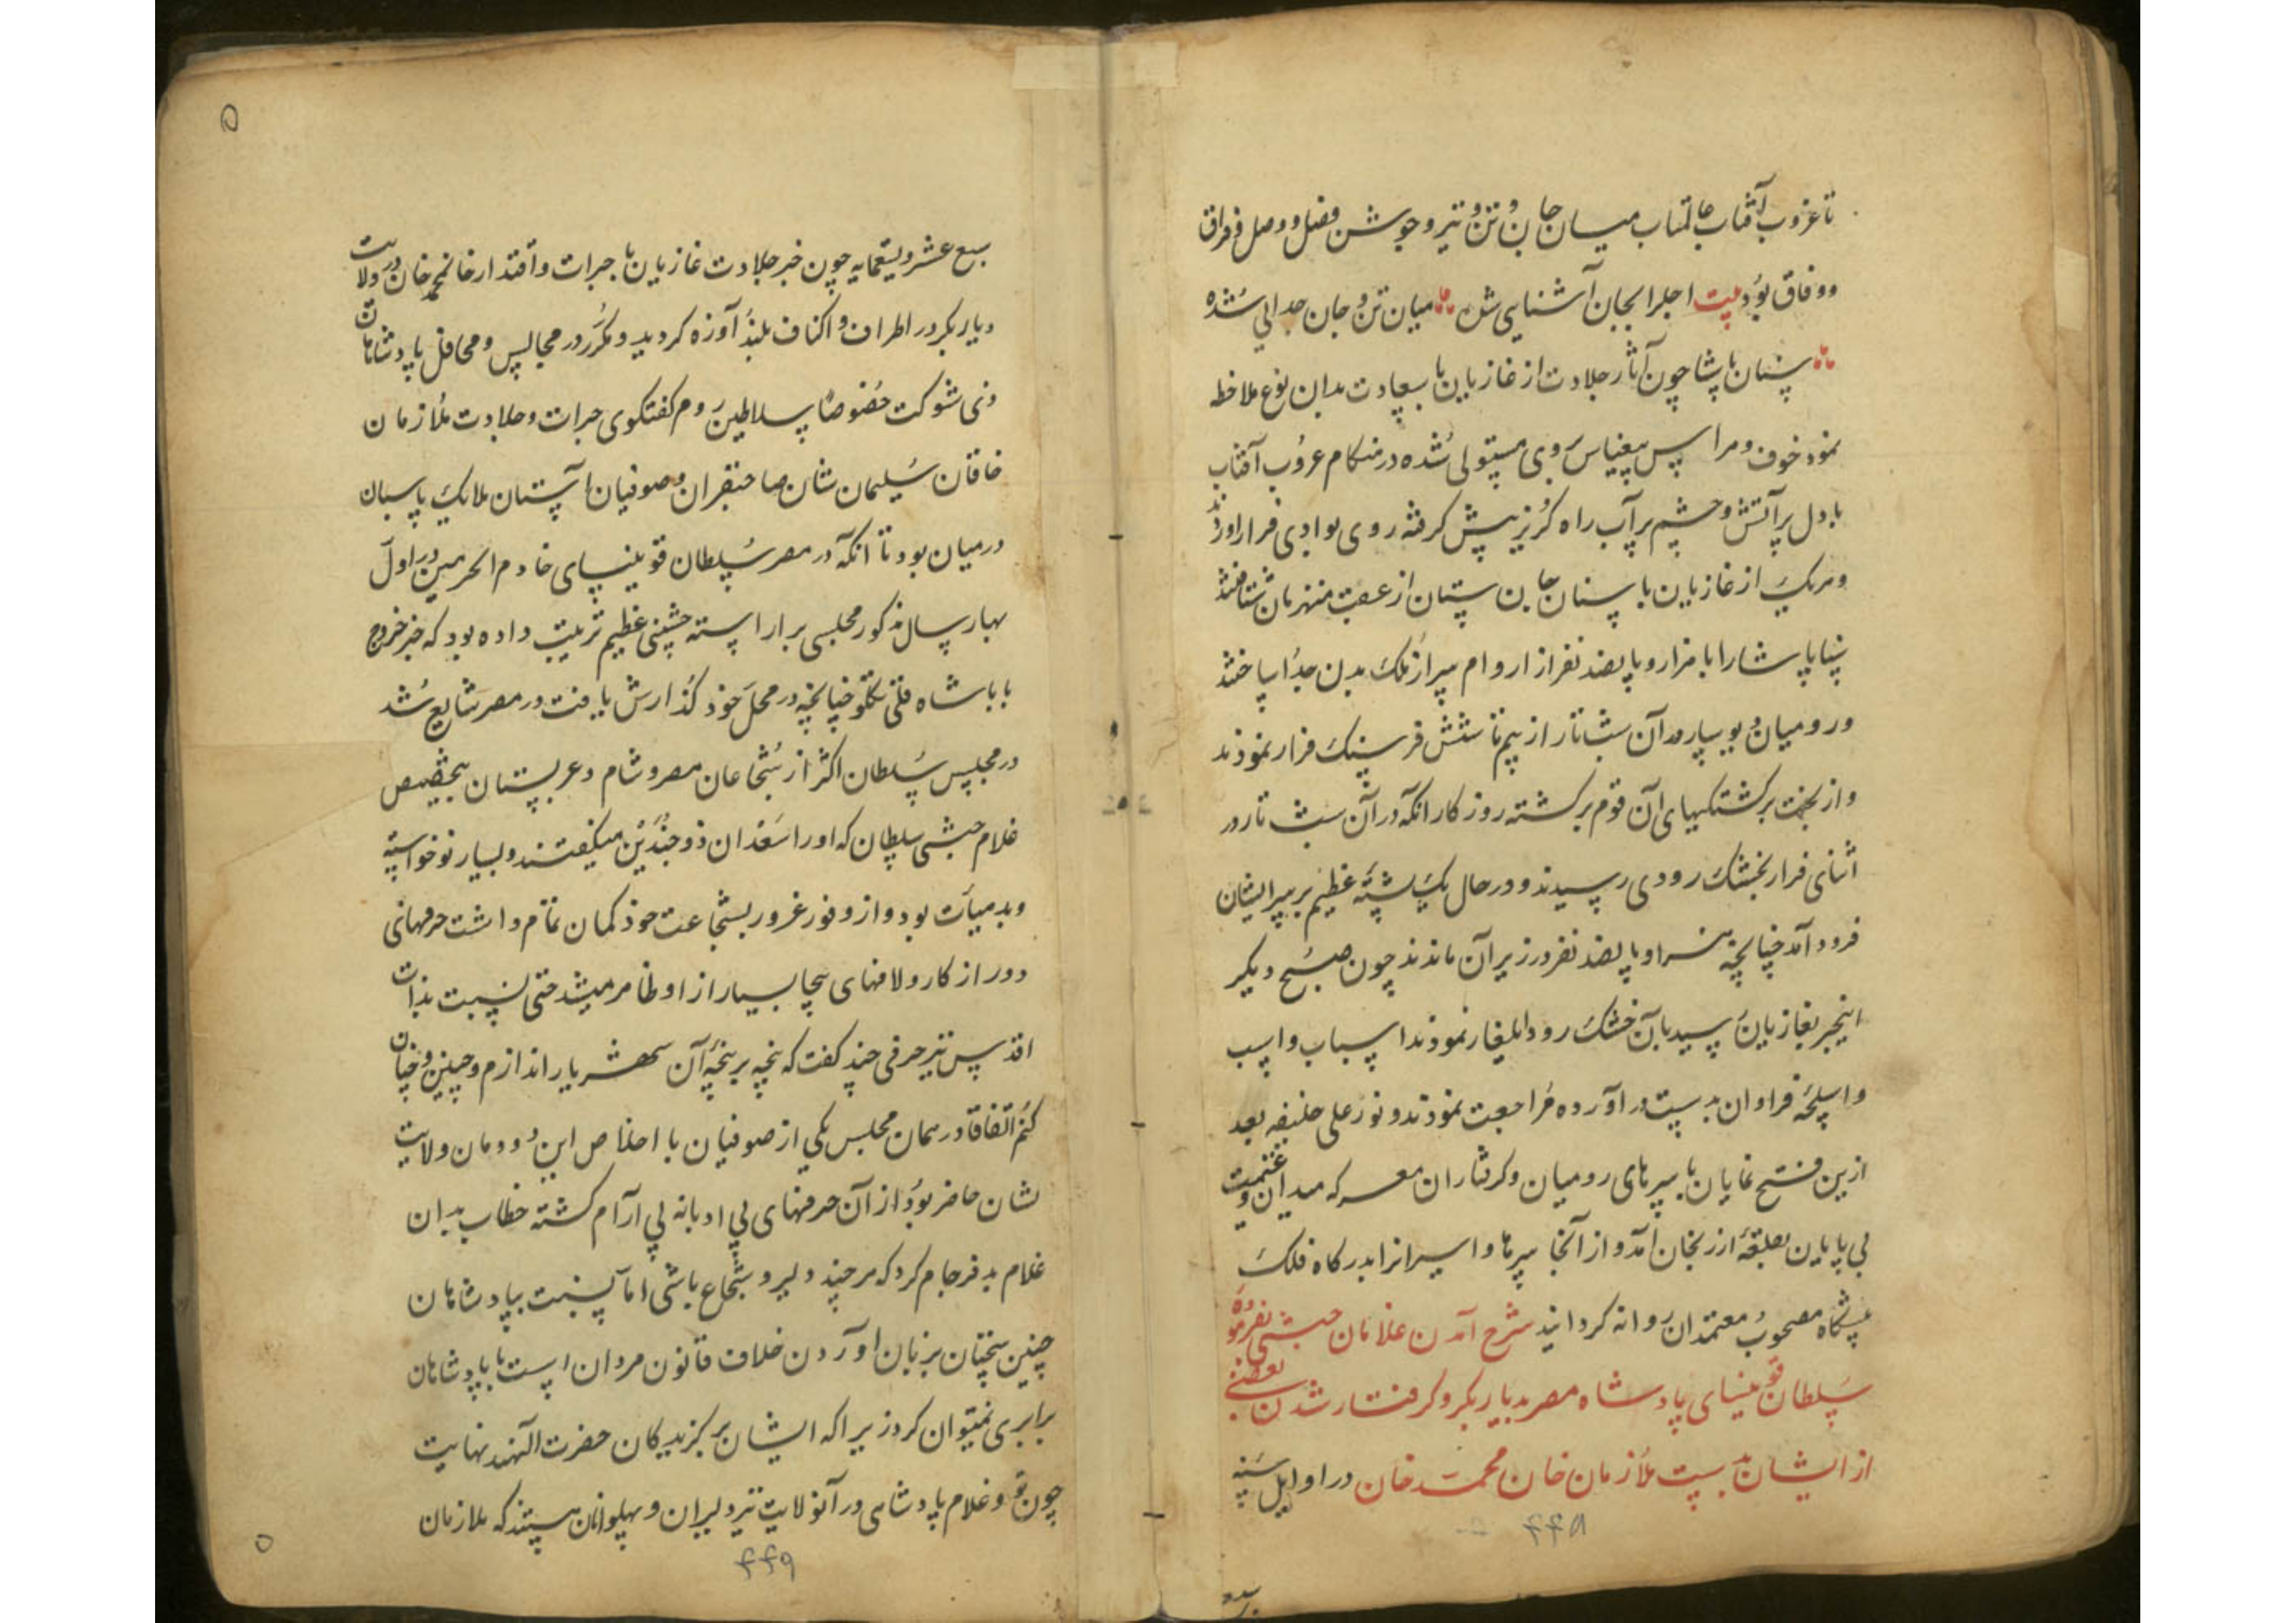 تا غروب آفتاب عالمتاب میان جان و تن و تیر و جوشن فصل و وصل و فراق
و وفاق بود بیت اجل را بجان آشنایی شده میان تن و جان جدایی شده
سنان پاشا چون آثار جلادت از غازیان با سعادت بدان نوع ملاحظه
نمود خوف و هراس بیقیاس بر وی مستولی شده در هنکام غروب آفتاب
با دل پر آتش و چشم پر آب راه کریز پیش کرفته روی بوادی فرار آوردند
و هریک از غازیان با سنان جان ستان از عقب منهزمان شتافتند
سنان پاشا را با هزار و پانصد نفر از اروام سر از ملک بدن جدا ساختند
و رومیان در آن شب تار از بیم تا شش فرسنک فرار نمودند
و از بخت برکشتکیهای آن قوم برکشته روزکار آنکه در آن شب تار در
اثنای فرار بخشک رودی رسیدند و در حال یک پشته عظیم بر سر ایشان
فرود آمد چنانچه هزار و پانصد نفر در زیر آن ماندند چون صبح دیکر
اینخبر بغازیان رسید بآن خشک رود ایلغار نمودند اسباب و اسب
و اسلحه فراوان بدست در آورده مراجعت نمودند و نور علی خلیفه بعد
ازین فتح نمایان با سرهای رومیان و کرفتاران معرکه میدان و غنیمت
بی پایان بقلعه ارزنجان آمد و از آنجا سرها و اسیرانرا بدرکاه فلک
پیشکاه مصحوب معتمدان روانه کردانید شرح آمدن غلامان حبشی بفرموده
سلطان قوینسای پادشاه مصر بدیار بکر و کرفتار شدن بعضی
از ایشان بدست ملازمان خان محمد خان در اوایل سنه
۴۴۸
سبع عشر و تسعمایه چون خبر جلادت غازیان با جرات و اقتدار خانمحمد خان در ولایت
دیار بکر در اطراف و اکناف بلند آوازه کردید و مکرر در مجالس و محافل پادشاهان
ذی شوکت خصوصا سلاطین روم کفتکوی جرات و جلادت ملازمان
خاقان سلیمان شان صاحبقران و صوفیان آستان ملایک پاسبان
در میان بود تا آنکه در مصر سلطان قوینسای خادم الحرمین در اول
بهار سال مذکور مجلسی بر آراسته جشنی عظیم ترتیب داده بود که خبر خروج
بابا شاه قلی تکلو چنانچه در محل خود کذارش یافت در مصر شایع شد
در مجلس سلطان اکثر از شجاعان مصر و شام و عربستان بتخصیص
غلام حبشی سلطان که او را سعدان ذو جندین میکفتند و بسیار نو خواسته
و بد هیأت بود و از وفور غرور بشجاعت خود کمان تمام داشت حرفهای
دور از کار و لافهای بیجا بسیار از او ظاهر میشد حتی نسبت بذات
اقدس نیز حرفی چند کفت که پنجه بر پنجه آن شهریار اندازم و چنین و چنان
کنم اتفاقا در همان مجلس یکی از صوفیان با اخلاص این دودمان ولایت
نشان حاضر بود از آن حرفهای بی ادبانه بی آرام کشته خطاب بدان
غلام بد فرجام کرد که هر چند دلیر و شجاع باشی اما نسبت بپادشاهان
چنین سخنان بر زبان آوردن خلاف قانون مردان است با پادشاهان
برابری نمیتوان کرد زیرا که ایشان برکزیدکان حضرت الهند نهایت
چون تو غلام پادشاهی در آنولایت نیز دلیران و پهلوانان هستند که ملازمان
۴۴۹